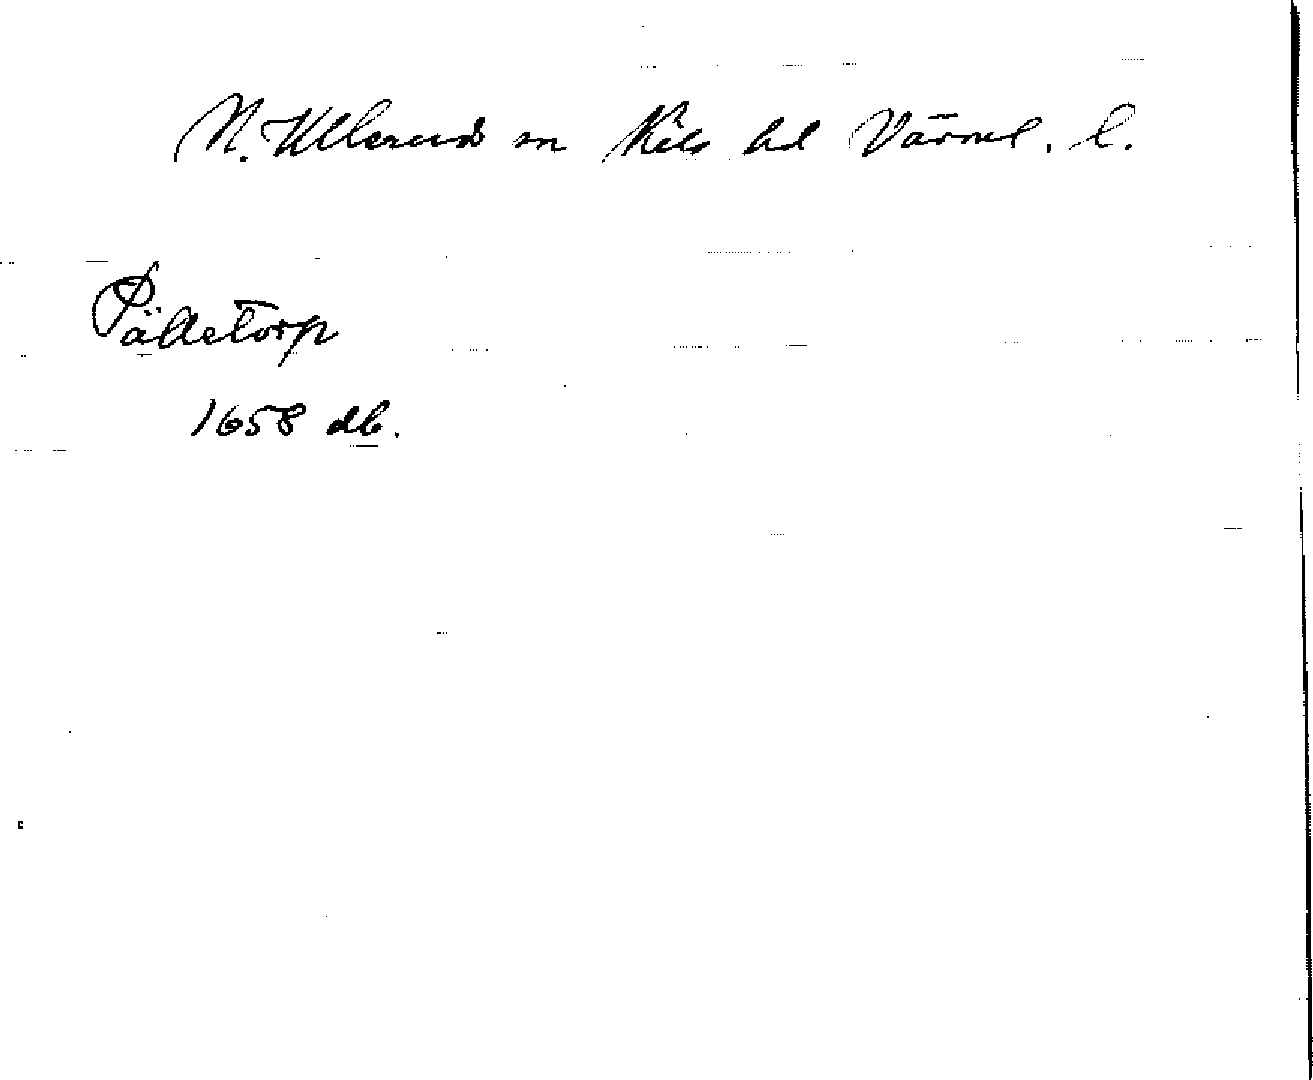 N. Ullerud sn Kils hd Värml. l.
Pälletorp
1658 db.